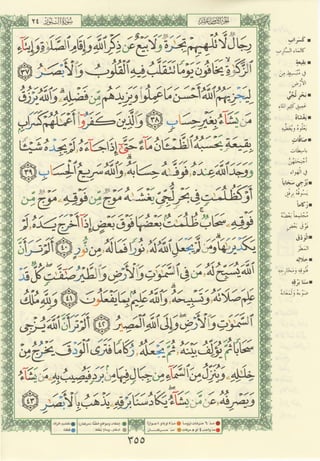 سورة النور ٢٤
الجزء الثامن عشر
رِجَالٌ لَّا تُلْهِيهِمْ تِجَٰرَةٌ وَلَا بَيْعٌ عَن ذِكْرِ ٱللَّهِ وَإِقَامِ ٱلصَّلَوٰةِ وَإِيتَآءِ
ٱلزَّكَوٰةِ يَخَافُونَ يَوْمًا تَتَقَلَّبُ فِيهِ ٱلْقُلُوبُ وَٱلْأَبْصَٰرُ ٣٧
لِيَجْزِيَهُمُ ٱللَّهُ أَحْسَنَ مَا عَمِلُوا۟ وَيَزِيدَهُم مِّن فَضْلِهِۦ وَٱللَّهُ يَرْزُقُ
مَن يَشَآءُ بِغَيْرِ حِسَابٍ ٣٨ وَٱلَّذِينَ كَفَرُوٓا۟ أَعْمَٰلُهُمْ كَسَرَابٍۭ
بِقِيعَةٍ يَحْسَبُهُ ٱلظَّمْـَٔانُ مَآءً حَتَّىٰٓ إِذَا جَآءَهُۥ لَمْ يَجِدْهُ شَيْـًٔا
وَوَجَدَ ٱللَّهَ عِندَهُۥ فَوَفَّىٰهُ حِسَابَهُۥ وَٱللَّهُ سَرِيعُ ٱلْحِسَابِ ٣٩
أَوْ كَظُلُمَٰتٍ فِى بَحْرٍ لُّجِّىٍّ يَغْشَىٰهُ مَوْجٌ مِّن فَوْقِهِۦ مَوْجٌ مِّن
فَوْقِهِۦ سَحَابٌ ظُلُمَٰتٌۢ بَعْضُهَا فَوْقَ بَعْضٍ إِذَآ أَخْرَجَ يَدَهُۥ لَمْ
يَكَدْ يَرَىٰهَا وَمَن لَّمْ يَجْعَلِ ٱللَّهُ لَهُۥ نُورًا فَمَا لَهُۥ مِن نُّورٍ ٤٠ أَلَمْ تَرَ أَنَّ
ٱللَّهَ يُسَبِّحُ لَهُۥ مَن فِى ٱلسَّمَٰوَٰتِ وَٱلْأَرْضِ وَٱلطَّيْرُ صَٰٓفَّٰتٍ كُلٌّ قَدْ
عَلِمَ صَلَاتَهُۥ وَتَسْبِيحَهُۥ وَٱللَّهُ عَلِيمٌۢ بِمَا يَفْعَلُونَ ٤١ وَلِلَّهِ مُلْكُ
ٱلسَّمَٰوَٰتِ وَٱلْأَرْضِ وَإِلَى ٱللَّهِ ٱلْمَصِيرُ ٤٢ أَلَمْ تَرَ أَنَّ ٱللَّهَ يُزْجِى
سَحَابًا ثُمَّ يُؤَلِّفُ بَيْنَهُۥ ثُمَّ يَجْعَلُهُۥ رُكَامًا فَتَرَى ٱلْوَدْقَ يَخْرُجُ مِنْ
خِلَٰلِهِۦ وَيُنَزِّلُ مِنَ ٱلسَّمَآءِ مِن جِبَالٍ فِيهَا مِنۢ بَرَدٍ فَيُصِيبُ بِهِۦ مَن يَشَآءُ
وَيَصْرِفُهُۥ عَن مَّن يَشَآءُ يَكَادُ سَنَا بَرْقِهِۦ يَذْهَبُ بِٱلْأَبْصَٰرِ ٤٣
٣٥٥
كسراب
بقيعة
بحر لجي
يغشاه
صافات
يزجي سحابا
ركاما
الودق
خلاله
سنا برقه